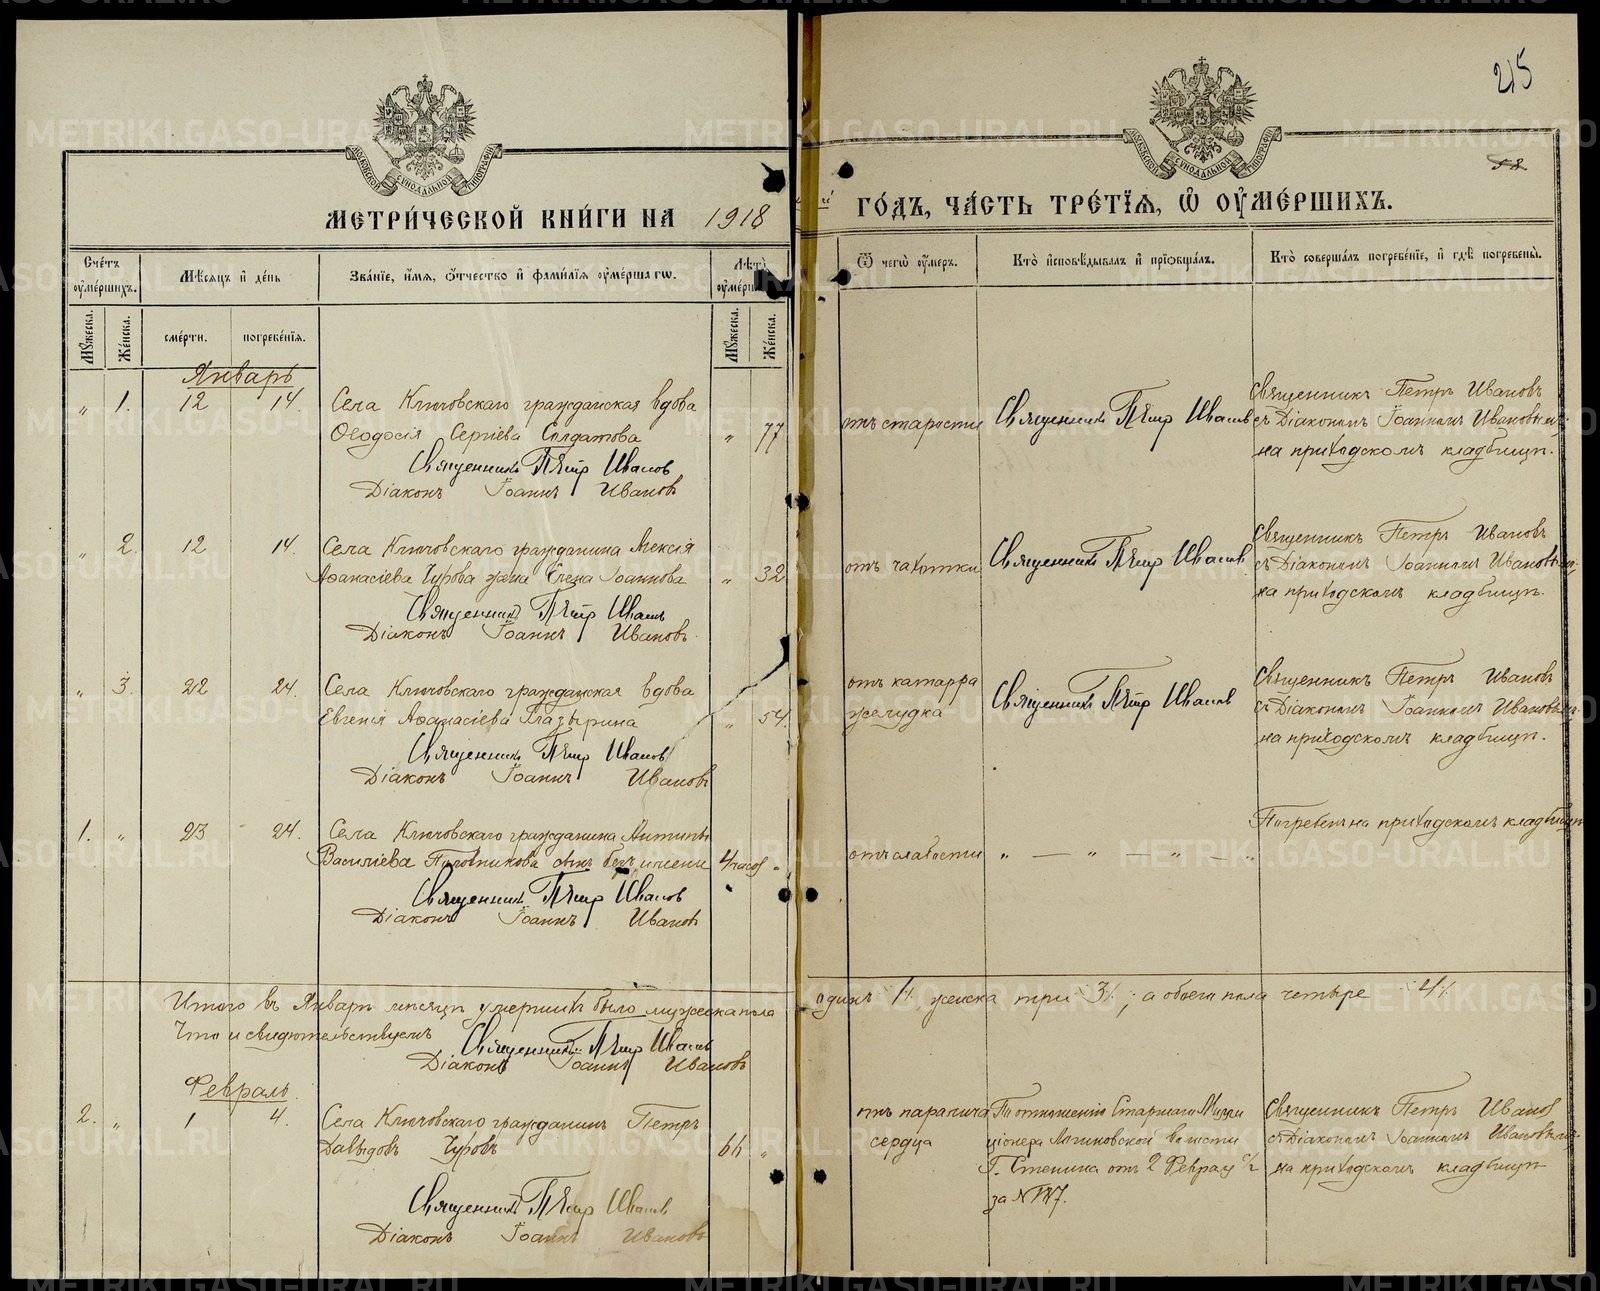 215
58
МОСКОВСКОЙ СѴНОДАЛЬНОЙ ТИПОГРАФІИ
МОСКОВСКОЙ СѴНОДАЛЬНОЙ ТИПОГРАФІИ
МЕТРИ́ЧЕСКОЙ КНИ́ГИ НА 1918
ГО́ДЪ, ЧА́СТЬ ТРЕ́ТЇѦ, Ѿ ОУ҆МЕ́РШИХЪ.
Сче́тъ оу҆ме́ршихъ.
Мѣ́сѧцъ и҆ де́нь
Зва́нїе, и҆́мѧ, ѻ҆́тчество и҆ фами́лїѧ оу҆ме́ршагѡ.
Лѣ́та оу҆ме́рш
Ѿ чегѡ̀ оу҆́меръ.
Кто̀ и҆сповѣ́дывалъ и҆ прїѡбща́лъ.
Кто̀ соверша́лъ погребе́нїе, и҆ гдѣ̀ погребены̀.
Мꙋ́жеска.
Же́нска.
сме́рти.
погребе́нїѧ.
Мꙋ́жеска.
Же́нска.
Январь
„ 1. 12 14. Села Ключовскаго гражданская вдова
Ѳеодосія Сергіева Солдатова „ 77
Священникъ Петр Иванов
Діаконъ Іоаннъ Ивановъ
отъ старости
Священникъ Петр Иванов
Священникъ Петръ Ивановъ
съ Діакономъ Іоанномъ Ивановымъ
на приходскомъ кладбищѣ.
„ 2. 12 14. Села Ключовскаго гражданина Алексія
Аѳанасіева Чурова жена Елена Іоаннова „ 32
Священникъ Петр Иванов
Діаконъ Іоаннъ Ивановъ
отъ чахотки
Священникъ Петр Иванов
Священникъ Петръ Ивановъ
съ Діакономъ Іоанномъ Ивановымъ
на приходскомъ кладбищѣ.
„ 3. 22 24. Села Ключовскаго гражданская вдова
Евгенія Аѳанасіева Глазырина „ 54.
Священникъ Петр Иванов
Діаконъ Іоаннъ Ивановъ
отъ катарра
желудка
Священникъ Петр Иванов
Священникъ Петръ Ивановъ
съ Діакономъ Іоанномъ Ивановымъ
на приходскомъ кладбищѣ.
1. „ 23 24. Села Ключовскаго гражданина Антипы
Василіева сынъ безъ имени 4 часов „
Священникъ Петр Иванов
Діаконъ Іоаннъ Ивановъ
отъ слабости
„ — „ — „ — „
Погребенъ на приходскомъ кладбищѣ
Итого въ Январѣ мѣсяцѣ умершихъ было мужеска пола одинъ 1, женска три 3, а обоего пола четыре 4
Что и свидѣтельствуемъ
Священникъ Петр Иванов
Діаконъ Іоаннъ Ивановъ
Февраль.
2. „ 1 4. Села Ключовскаго гражданинъ Петръ
Давыдовъ Чуровъ 66 „
Священникъ Петр Иванов
Діаконъ Іоаннъ Ивановъ
отъ паралича
сердца
По отношенію Старшаго Мили
ціонера волости
Г. Стенина отъ 2 Февраля с/г
за №
Священникъ Петръ Иванов
съ Діакономъ Іоанномъ Ивановымъ
на приходскомъ кладбищѣ
METRIKI.GASO-URAL.RU